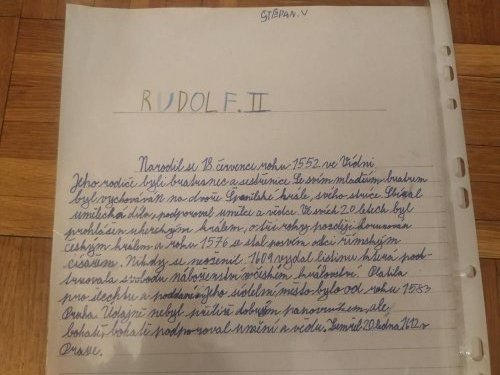 ŠTĚPÁN.V
RUDOLF.II
Narodil se 18 červenci roku 1552 ve Vídni
Jeho rodiče byli bratranec a sestřenice Se svím mladším bratrem
byl vychováván na dvoře Španělské krále, svého strýce Sbíral
umělecká díla, podporoval umělce a vědce Ve svích 20 letech byl
prohlášen uherským králem, o tři roky později korunován
Českým králem a roku 1576 se stal po svím otci římským
císařem. Nikdy se neoženil 1609 vydal listinu která pot-
vrzovala svobodu náboženství v českém království Platila
pro šlechtu a poddané Jeho sídelní město bylo od roku 1583
Praha Údajně nebyl příliš dobrým panovníkem, ale
bohatě bohatě podporoval umění a vědu. Zemřel 20 ledna 1612 v
Praze.